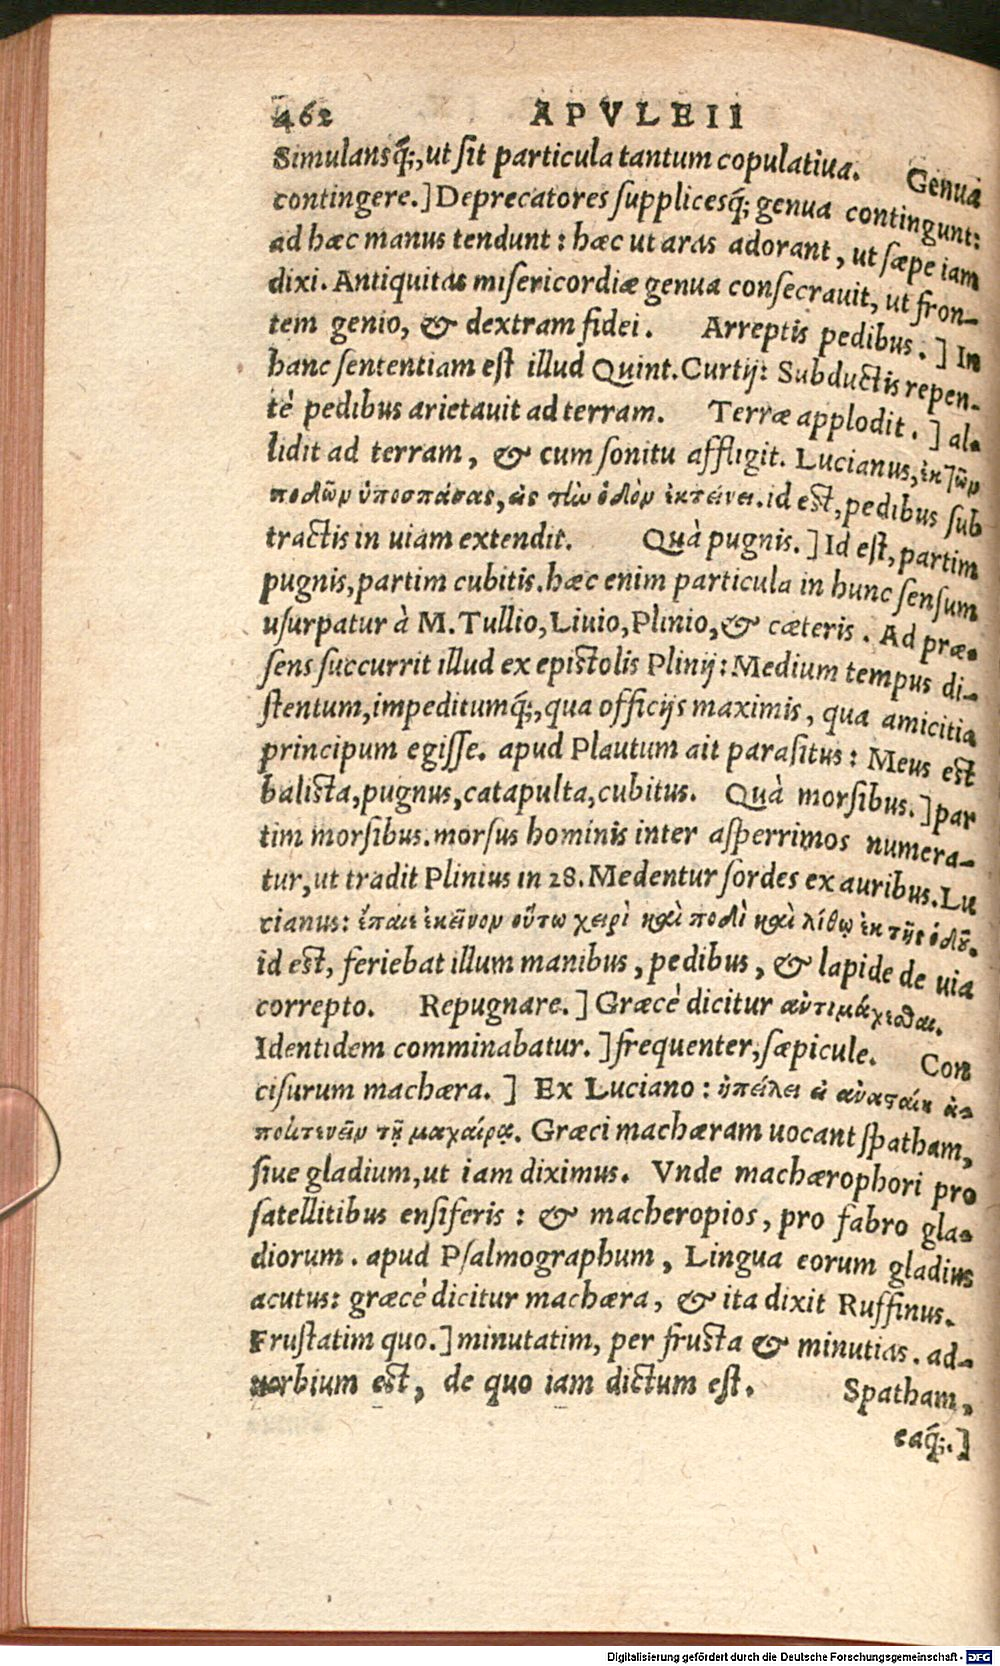 462 APVLEII
Simulansq́;, ut sit particula tantum copulatiua. Genua
contingere.] Deprecatores supplicesq́; genua contingunt:
ad hæc manus tendunt: hæc ut aras adorant, ut sæpe iam
dixi. Antiquitas misericordiæ genua consecrauit, ut fron-
tem genio, & dextram fidei. Arreptis pedibus.] In
hanc sententiam est illud Quint. Curtij: Subductis repen-
tè pedibus arietauit ad terram. Terræ applodit.] al-
lidit ad terram, & cum sonitu affligit. Lucianus, ἐκ τῶν
ποδῶν ὑποσπάσας, εἰς τὴν ὁδὸν ἐκτείνει. id est, pedibus sub
tractis in uiam extendit. Quà pugnis.] Id est, partim
pugnis, partim cubitis. hæc enim particula in hunc sensum
usurpatur à M. Tullio, Liuio, Plinio, & cæteris. Ad præ-
sens succurrit illud ex epistolis Plinij: Medium tempus di-
stentum, impeditumq́;, qua officijs maximis, qua amicitia
principum egisse. apud Plautum ait parasitus: Meus est
balista, pugnus, catapulta, cubitus. Quà morsibus.] par
tim morsibus. morsus hominis inter asperrimos numera-
tur, ut tradit Plinius in 28. Medentur sordes ex auribus. Lu
cianus: ἔπαιε ἐκεῖνον οὕτω χειρὶ καὶ ποδὶ καὶ λίθῳ ἐκ τῆς ὁδοῦ.
id est, feriebat illum manibus, pedibus, & lapide de uia
correpto. Repugnare.] Græcè dicitur αὐτιμάχεσθαι.
Identidem comminabatur.] frequenter, sæpicule. Con
cisurum machæra.] Ex Luciano: ἠπείλει
τῇ μαχαίρᾳ. Græci machæram uocant spatham,
siue gladium, ut iam diximus. Vnde machærophori pro
satellitibus ensiferis: & macheropios, pro fabro gla-
diorum. apud Psalmographum, Lingua eorum gladius
acutus: græcè dicitur machæra, & ita dixit Ruffinus.
Frustatim quo.] minutatim, per frusta & minutias. ad-
uerbium est, de quo iam dictum est. Spatham,
eaq́;.]
Digitalisierung gefördert durch die Deutsche Forschungsgemeinschaft - DFG